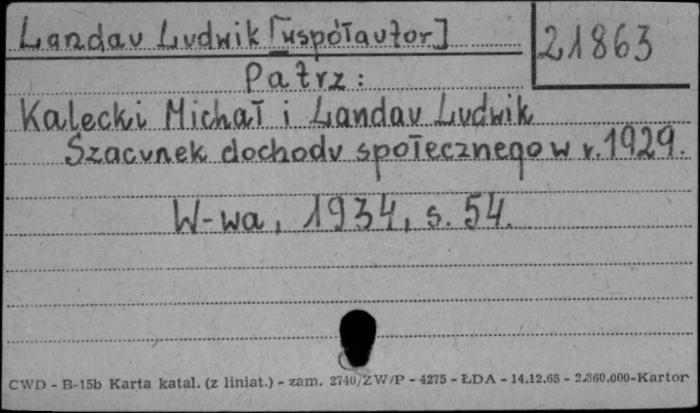 Landau Ludwik [współautor]
21863
Patrz:
Kalecki Michał i Landau Ludwik
Szacunek dochodu społecznego w r. 1929.
W-wa, 1934, s. 54.
CWD - B-15b Karta katal. (z liniat.) - zam. 2740/ZW/P - 4275 - ŁDA - 14.12.65 - 2.360.000-Kartor